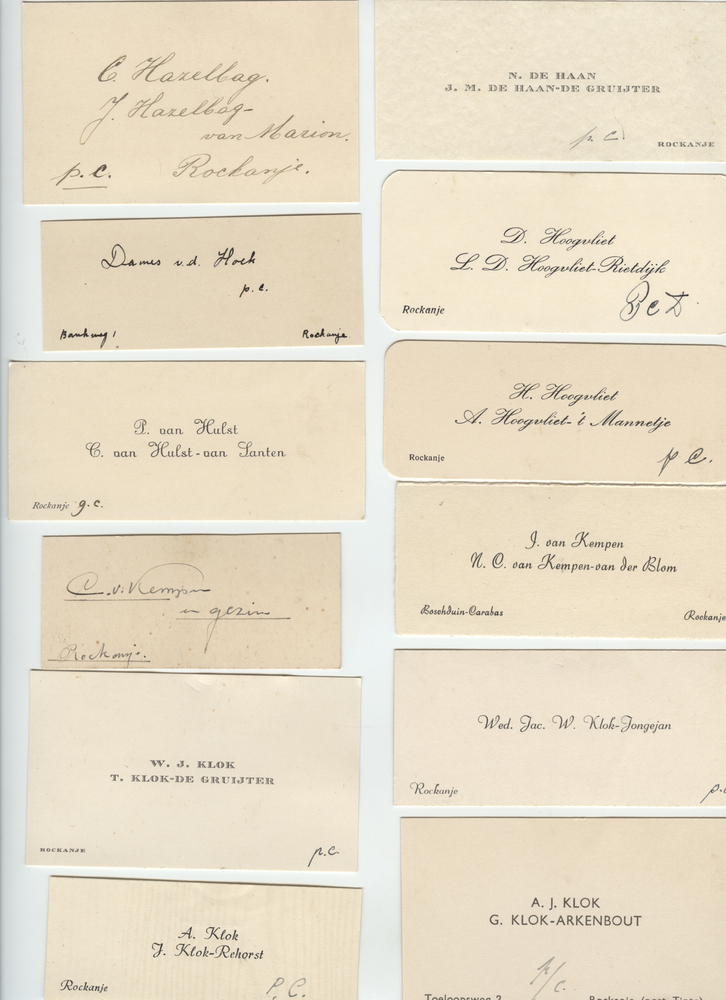 C. Hazelbag.
J. Hazelbag-
van Marion.
p.c. Rockanje.
Dames v.d. Hoek
p.c.
Rockanje
P. van Hulst
C. van Hulst-van Santen
Rockanje g.c.
C. v. Kempen
en gezin
Rockanje.
W. J. KLOK
T. KLOK-DE GRUIJTER
ROCKANJE p.c.
A. Klok
J. Klok-Rehorst
Rockanje P.C.
N. DE HAAN
J. M. DE HAAN-DE GRUIJTER
p.c.
ROCKANJE
D. Hoogvliet
L. D. Hoogvliet-Rietdijk
Rockanje
H. Hoogvliet
A. Hoogvliet-'t Mannetje
Rockanje p C.
J. van Kempen
N. C. van Kempen-van der Blom
Boschduin-Carabas Rockanje
Wed. Jac. W. Klok-Jongejan
Rockanje
A. J. KLOK
G. KLOK-ARKENBOUT
p/c.